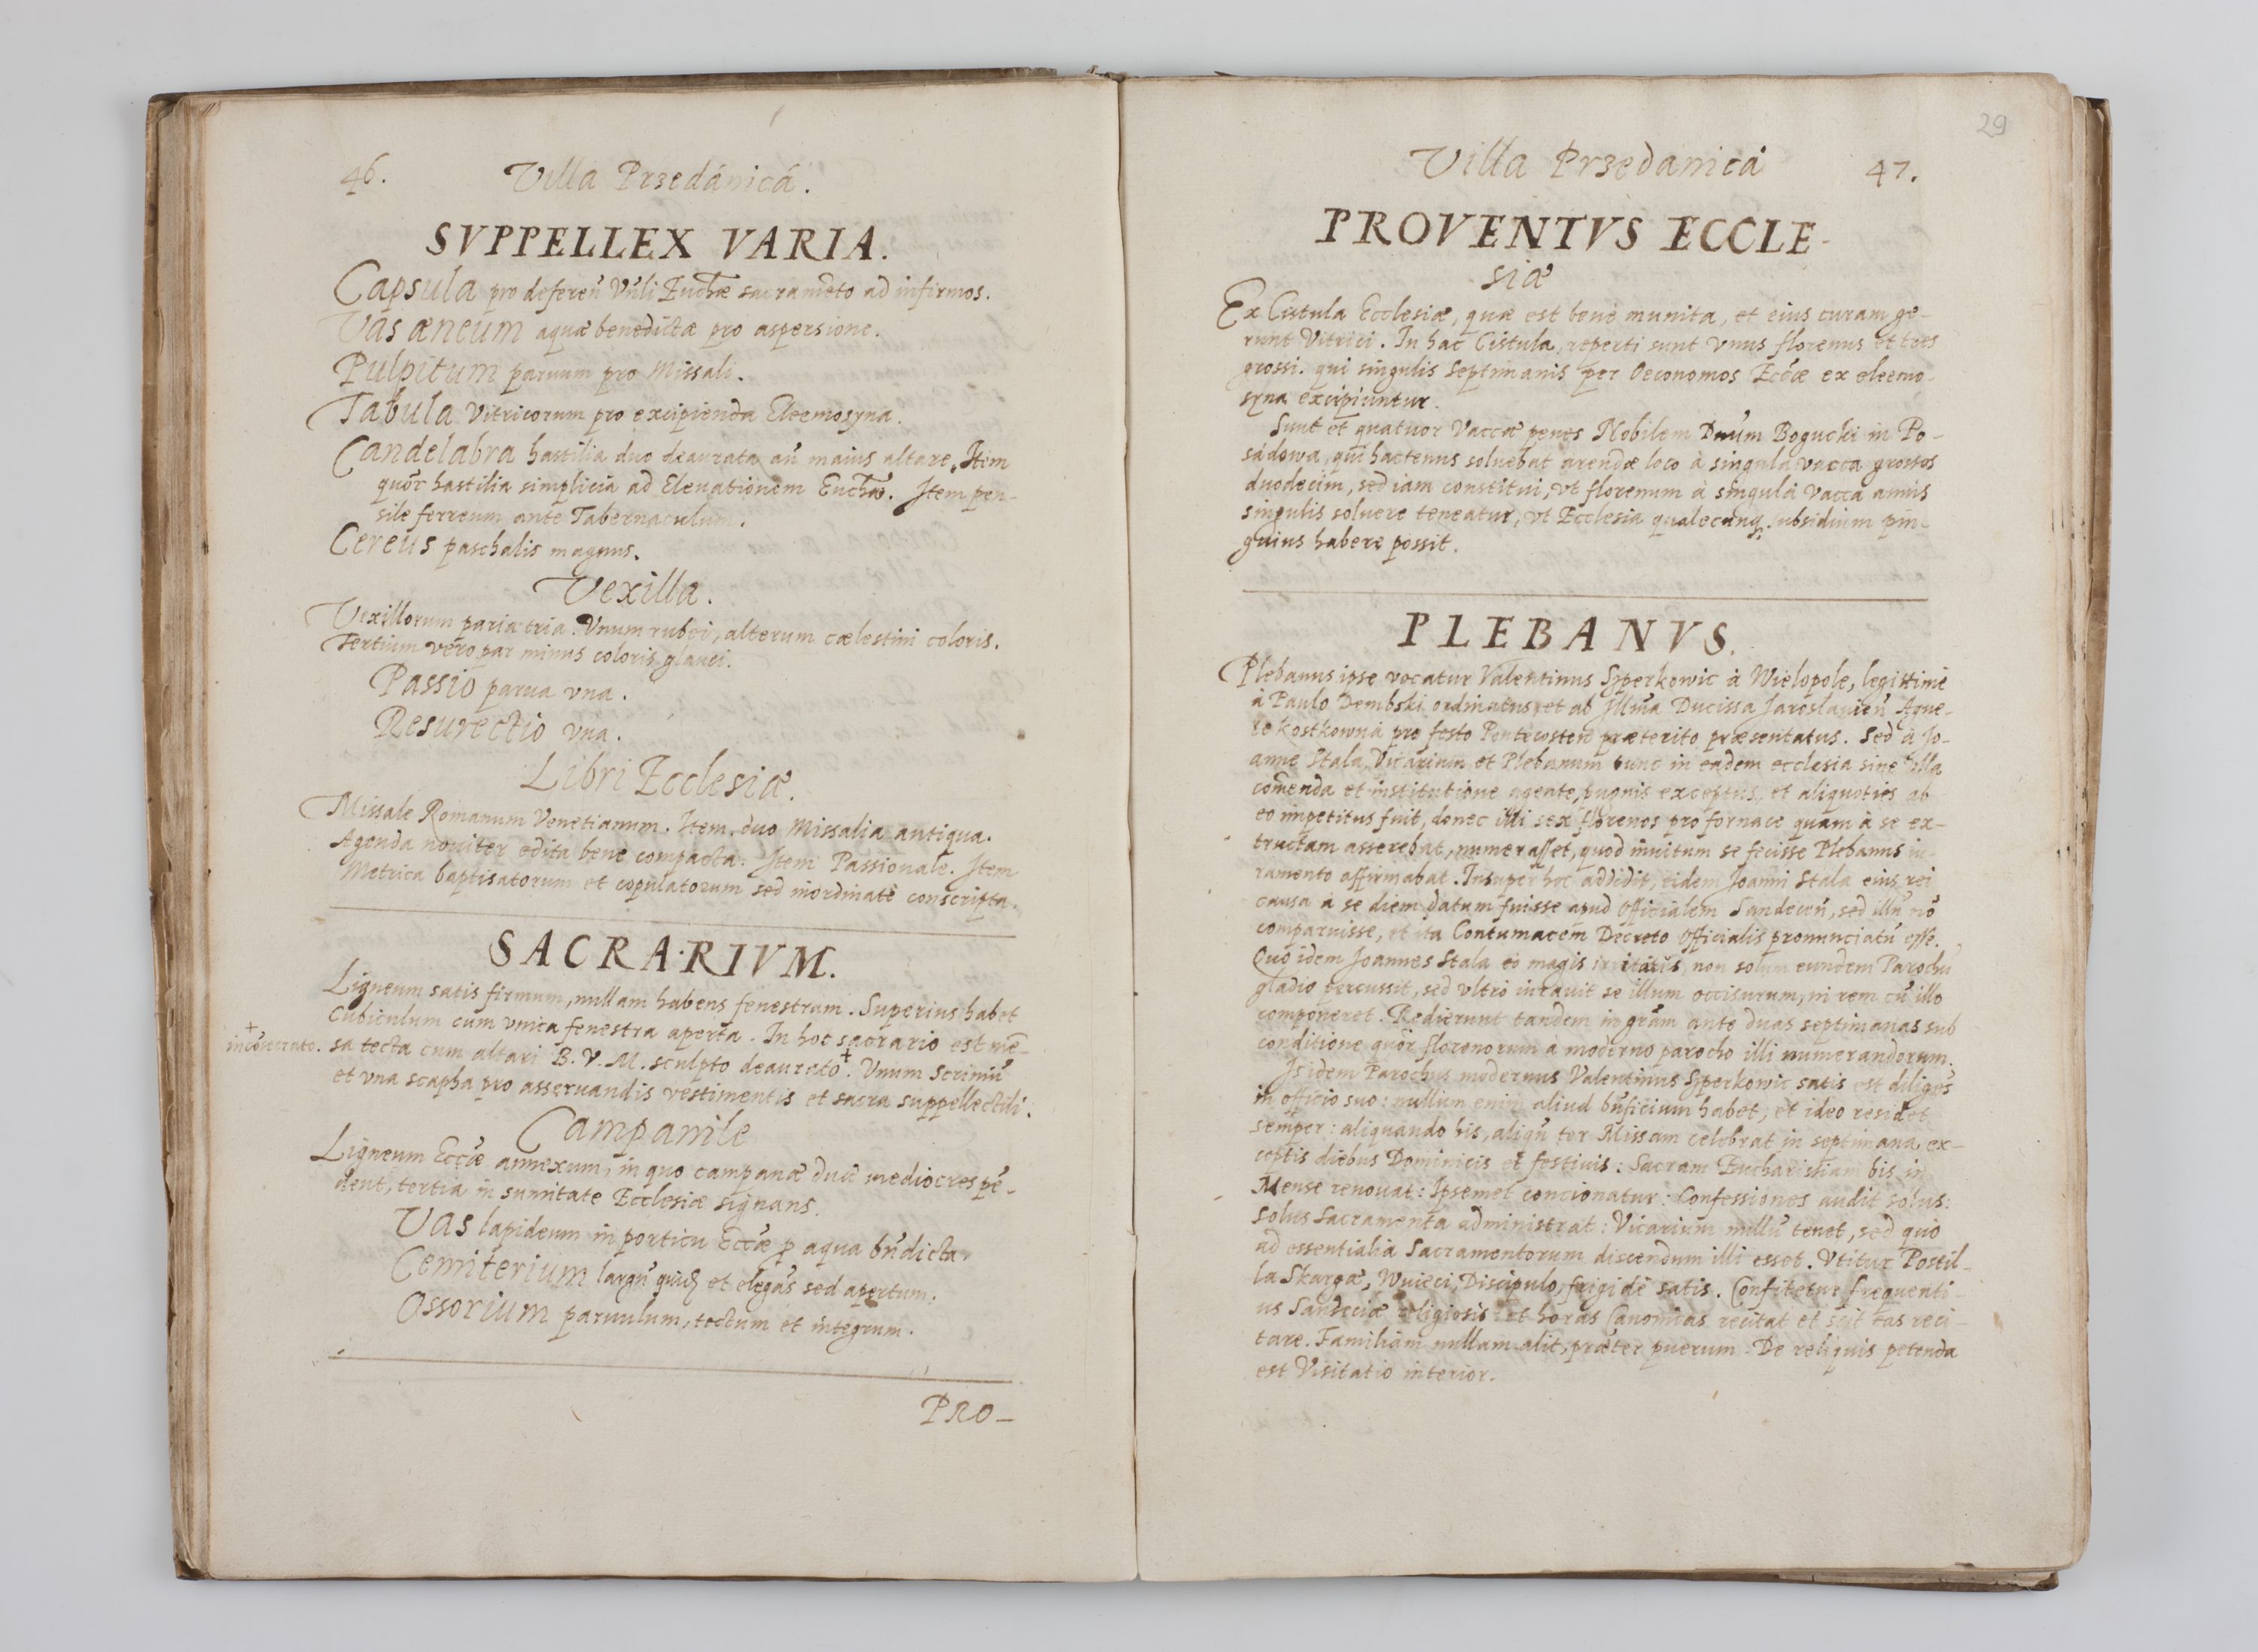 46. Villa Przedánicá.
SVPPELLEX VARIA.
Capsula pro deferen̄ Vn̄li Euchæ sacramēto ad infirmos.
Vas æneum aquæ benedictæ pro aspersione.
Pulpitum paruum pro Missali.
Tabula Vitricorum pro excipienda Eleemosyna.
Candelabra hastilia duo deaurata an̄ maius altare. Item
quōr hastilia simplicia ad Eleuationem Euchæ. Item pen-
sile ferreum ante Tabernaculum.
Cereus paschalis magnus.
Vexilla.
Vexillorum paria tria. Vnum rubei, alterum cælestini coloris.
Tertium vero par minus coloris glauci.
Passio parua vna.
Resurectio vna.
Libri Ecclesiæ.
Missale Romanum Venetianum. Item duo Missalia antiqua.
Agenda nouiter edita bene compacta. Item Passionale. Item
Metrica baptisatorum et copulatorum sed inordinatè conscripta.
SACRARIVM.
Ligneum satis firmum, nullam habens fenestram. Superius habet
Cubiculum cum vnica fenestra aperta. In hoc sacrario est mē-
+ incōsecrato. sa tecta cum altari B. V. M. sculpto deaurato +. Vnum Scriniū
et vna scapha pro asseruandis vestimentis et sacra suppellectili.
Campanile
Ligneum Eccæ annexum, in quo campanæ duæ mediocres pē-
dent, tertia in sumitate Ecclesiæ signans.
Vas lapideum in porticu Eccæ p aqua bn̄dicta.
Cemiterium largū quid et elegās sed apertum.
Ossorium paruulum, tectum et integrum.
PRO-
29
Villa Przedanica 47.
PROVENTVS ECCLE-
siæ
Ex Cistula Ecclesiæ, quæ est bene munita, et eius curam ge-
runt Vitrici. In hac Cistula, reperti sunt vnus florenus et tres
grossi. qui singulis Septimanis per Oeconomos Eccæ ex eleemo-
syna excipiuntur.
Sunt et quatuor Vaccæ penes Nobilem Dnūm Bogucki in Po-
sádowa, qui hactenus soluebat arendæ loco à singula vacca grossos
duodecim, sed iam constitui, vt florenum à singula Vacca annis
singulis soluere teneatur, vt Ecclesia qualecunq; subsidium pin-
guius habere possit.
PLEBANVS.
Plebanus ipse vocatur Valentinus Syperkowic à Wielopole, legittimè
à Paulo Dembski ordinatus, et ab Illma Ducissa Jaroslauien̄ Agne-
te Kostkowna pro festo Pentecosten præterito præsentatus. Sed à Jo-
anne Stala, Vicarium et Plebanum tunc in eadem ecclesia sine vlla
comenda et institutione agente, pugnis exceptus, et aliquoties ab
eo impetitus fuit, donec illi sex florenos pro fornace quam à se ex-
tructam asserebat, numerasset, quod inuitum se fecisse Plebanus iu-
ramento affirmabat. Insuper hoc addidit, eidem Joanni Stala eius rei
causa à se diem datum fuisse apud Officialem Sandecen̄, sed illū nō
comparuisse, et ita Contumacem Decreto Officialis pronunciatū esse.
Quo idem Joannes Stala eò magis irritatus, non solum eundem Parochū
gladio percussit, sed vltro iurauit se illum occisurum, ni rem cū illo
componeret. Redierunt tandem in grām ante duas septimanas sub
conditione quōr florenorum à moderno parocho illi numerandorum.
Is idem Parochus modernus Valentinus Syperkowic satis est diligēs
in officio suo: nullum enim aliud bn̄ficium habet, et ideo residet
semper: aliquando bis, aliqn̄ ter Missam celebrat in septimana, ex-
ceptis diebus Dominicis et festiuis: Sacram Eucharistiam bis in
Mense renouat: Ipsemet concionatur: Confessiones audit solus:
Solus Sacramenta administrat: Vicarium nullū tenet, sed quo
ad essentialia Sacramentorum discendum illi esset. Vtitur Postil-
la Skargæ, Wuieci, Discipulo, frigidè satis. Confitetur frequenti-
us Sandeciæ religiosis: et horas Canonicas recitat et scit eas reci-
tare. Familiam nullam alit, præter puerum. De reliquis petenda
est Visitatio interior.